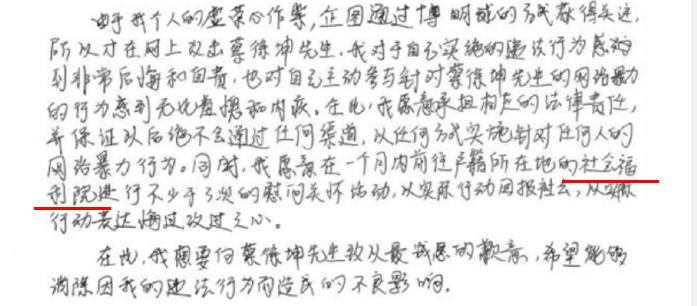 由于我个人的虚荣心作祟，企图通过博眼球的方式获得关注，
所以才在网上攻击蔡徐坤先生。我对于自己实施的违法行为感
到非常后悔和自责，也对自己主动参与针对蔡徐坤先生的网络暴力
的行为感到无比羞愧和内疚。在此，我愿意承担相应的法律责任，
并保证以后绝不会通过任何渠道，以任何方式实施针对任何人的
网络暴力行为。同时，我愿意在一个月内前往户籍所在地的社会福
利院进行不少于3次的慰问关怀活动，以实际行动回报社会，以实际
行动表达悔过改过之心。
在此，我想要向蔡徐坤先生致以最诚恳的歉意，希望能够
消除因我的违法行为而造成的不良影响。